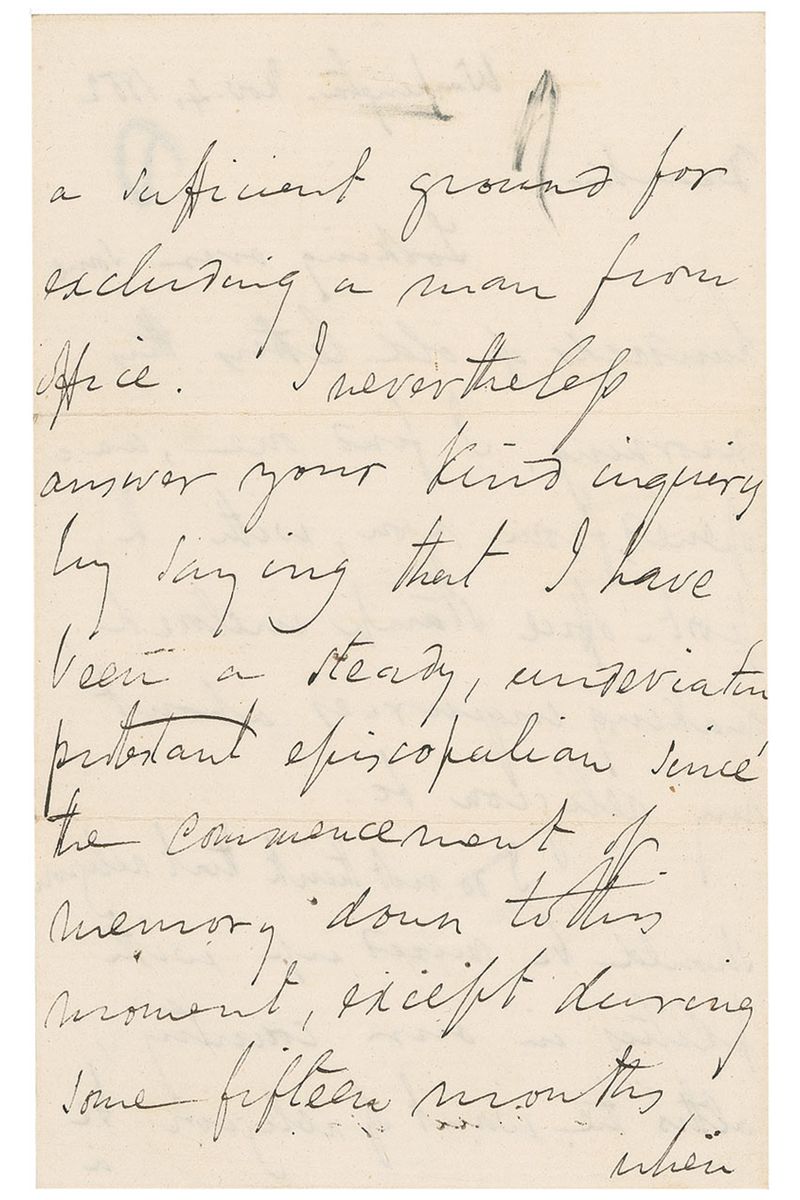 a sufficient ground for
excluding a man from
office. I nevertheless
answer your kind inquiry
by saying that I have
been a steady, undeviatin
protestant episcopalian since
the commencement of
memory down to this
moment, except during
some fifteen months,
when